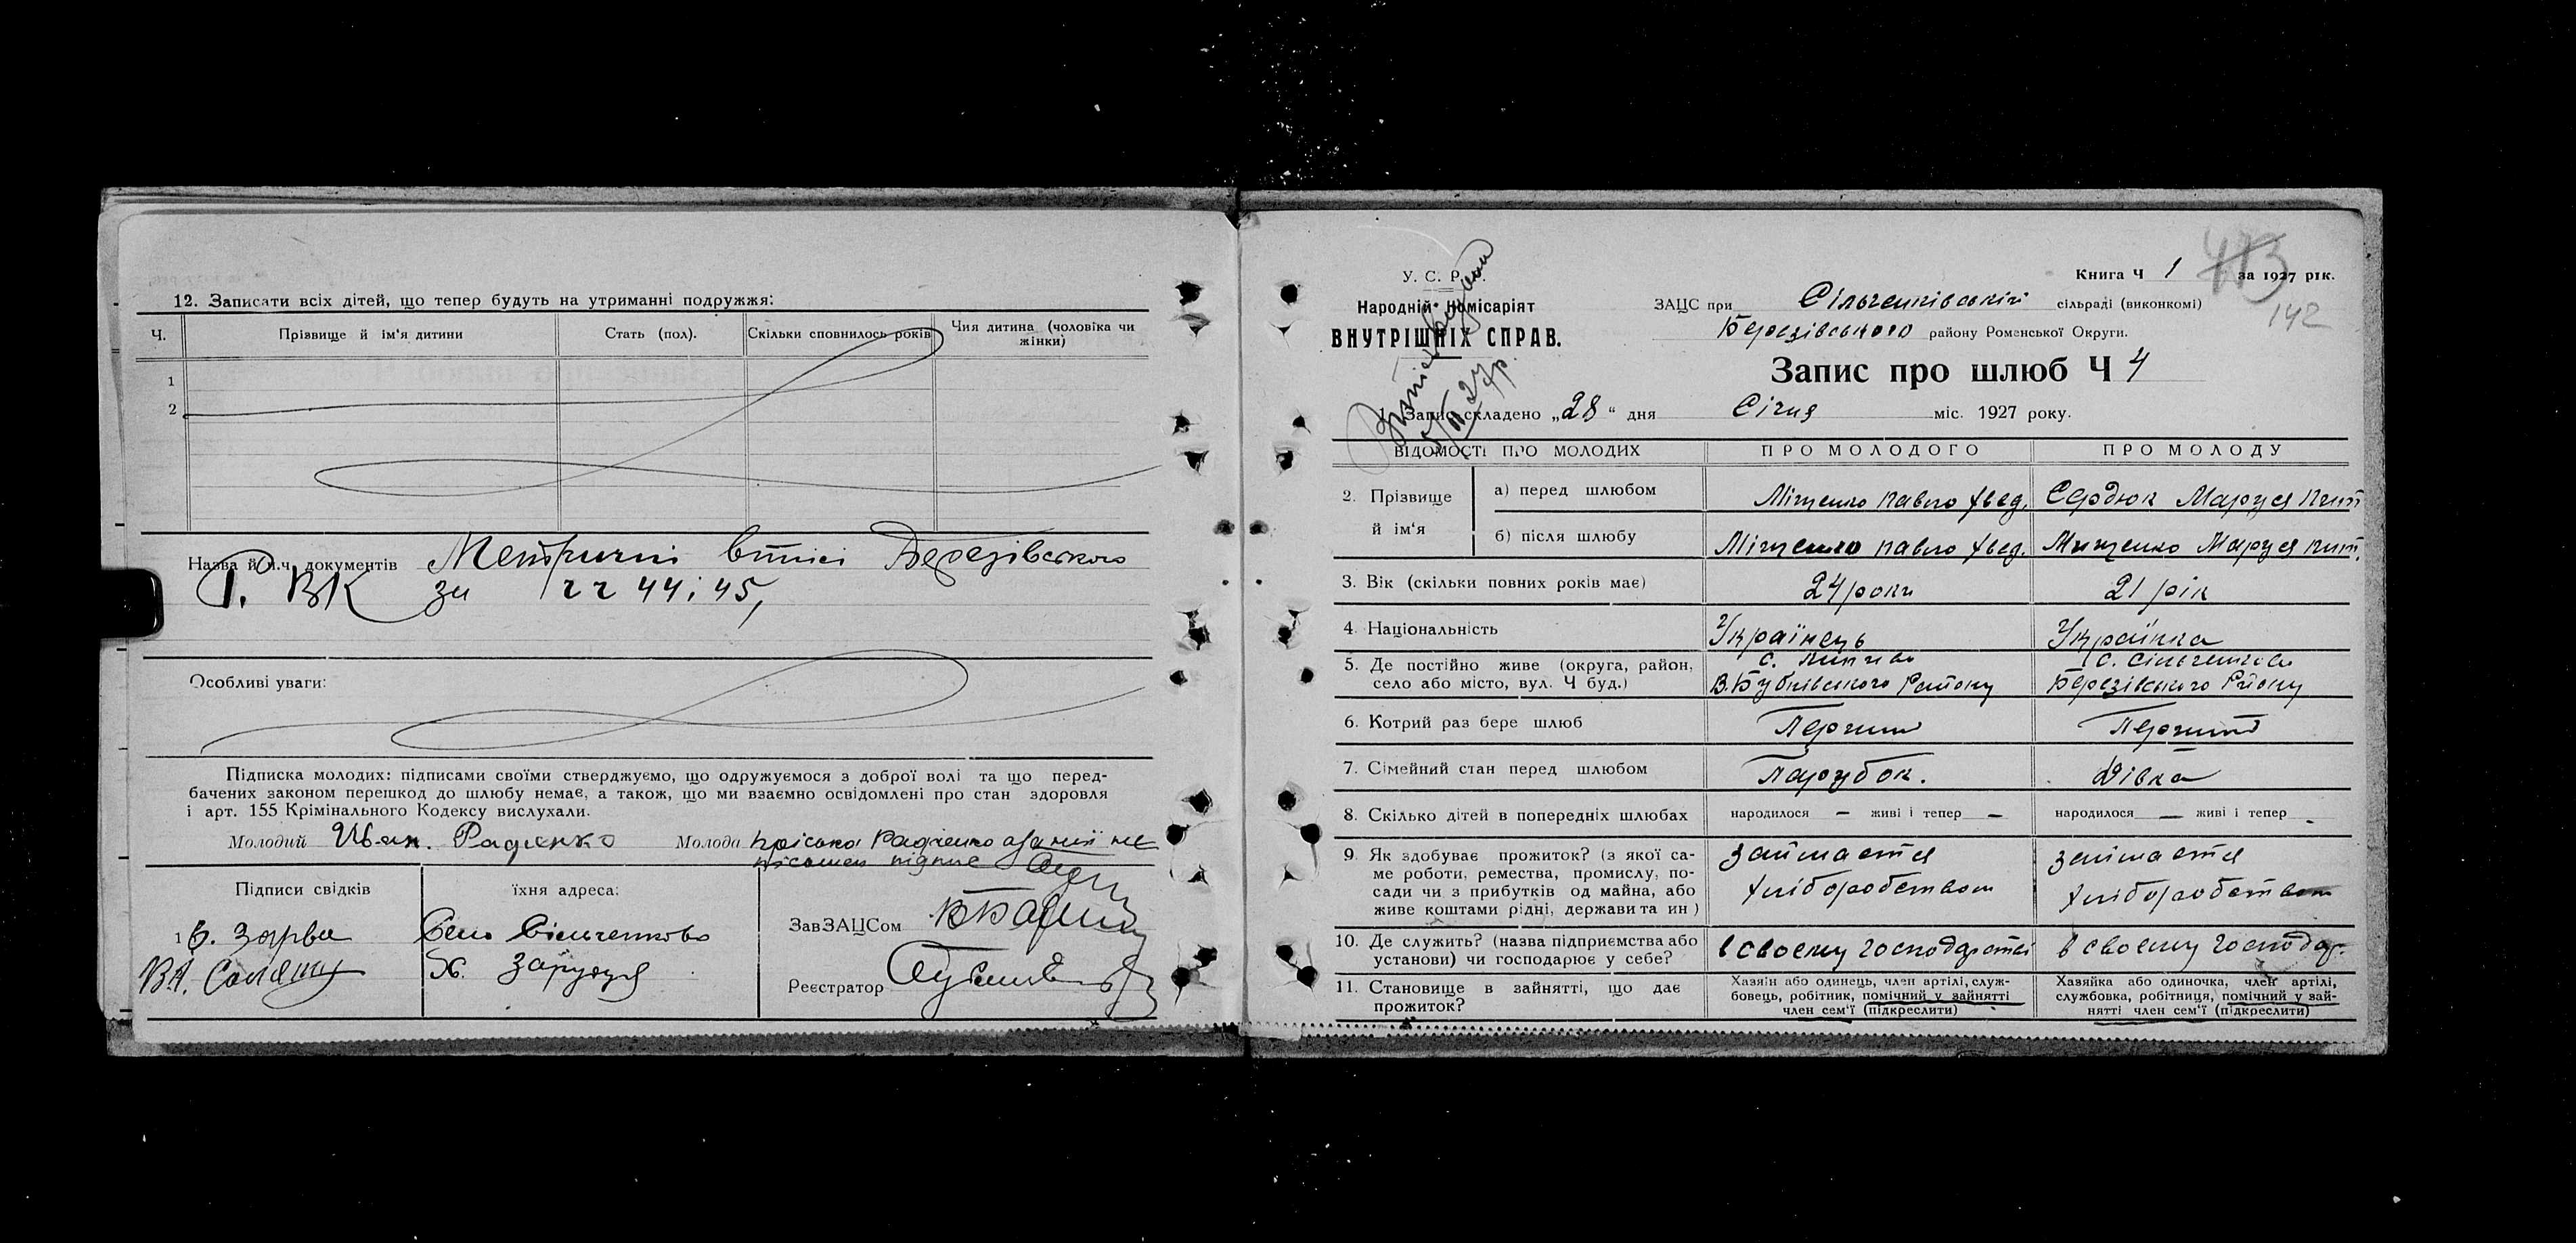 12. Записати всіх дітей, що тепер будуть на утриманні подружжя:
Ч. Прізвище й ім'я дитини Стать (пол). Скільки сповнилось років Чия дитина (чоловіка чи жінки)
1
2
Назва й ч.ч. документів Метричні Березівського
Р. ВК за чч 44 і 45,
Особливі уваги:
Підписка молодих: підписами своїми стверджуємо, що одружуємося з доброї волі та що перед-
бачених законом перешкод до шлюбу немає, а також, що ми взаємно освідомлені про стан здоровля
і арт. 155 Крімінального Кодексу вислухали.
Молодий Иван. Радченко Молода Пріська Радченко а за неї не
Підписи свідків їхня адреса:
ЗавЗАЦСом
1 Зарва Село Сільченково
В.А. Х. Заруддя
Реєстратор
У. С. Р. Р.
Народній Комісаріят
ВНУТРІШНІХ СПРАВ.
Книга Ч 1 за 1927 рік.
473
142
ЗАЦС при Сільченківській сільраді (виконкомі)
Березівського району Роменської Округи.
Запис про шлюб Ч 4
27 р.
1. Запис складено „28“ дня Січня міс. 1927 року.
ВІДОМОСТІ ПРО МОЛОДИХ ПРО МОЛОДОГО ПРО МОЛОДУ
2. Прізвище й ім'я
а) перед шлюбом Міщенко Павло Хвед. Сердюк Маруся
б) після шлюбу Міщенко Павло Хвед. Мищенко Маруся
3. Вік (скільки повних років має) 24 роки 21 рік
4. Національність Українець Українка
5. Де постійно живе (округа, район, с. с. Сільченково
село або місто, вул. Ч буд.) В.Бубнівського Району Березівського Району
6. Котрий раз бере шлюб Перший Перший
7. Сімейний стан перед шлюбом Парубок. Дівка
8. Скілько дітей в попередніх шлюбах народилося — живі і тепер — народилося — живі і тепер -
9. Як здобуває прожиток? (з якої са- займается займается
ме роботи, ремества, промислу, по- хліборобством хліборобством
сади чи з прибутків од майна, або
живе коштами рідні, держави та ин)
10. Де служить? (назва підприємства або в своему господарстві в своему господар.
установи) чи господарює у себе?
11. Становище в зайнятті, що дає
прожиток?
Хазяїн або одинець, член артілі, служ-
бовець, робітник, помічний у зайнятті
член сем'ї (підкреслити)
Хазяйка або одиночка, член артілі,
службовка, робітниця, помічний у зай-
нятті член сем'ї (підкреслити)